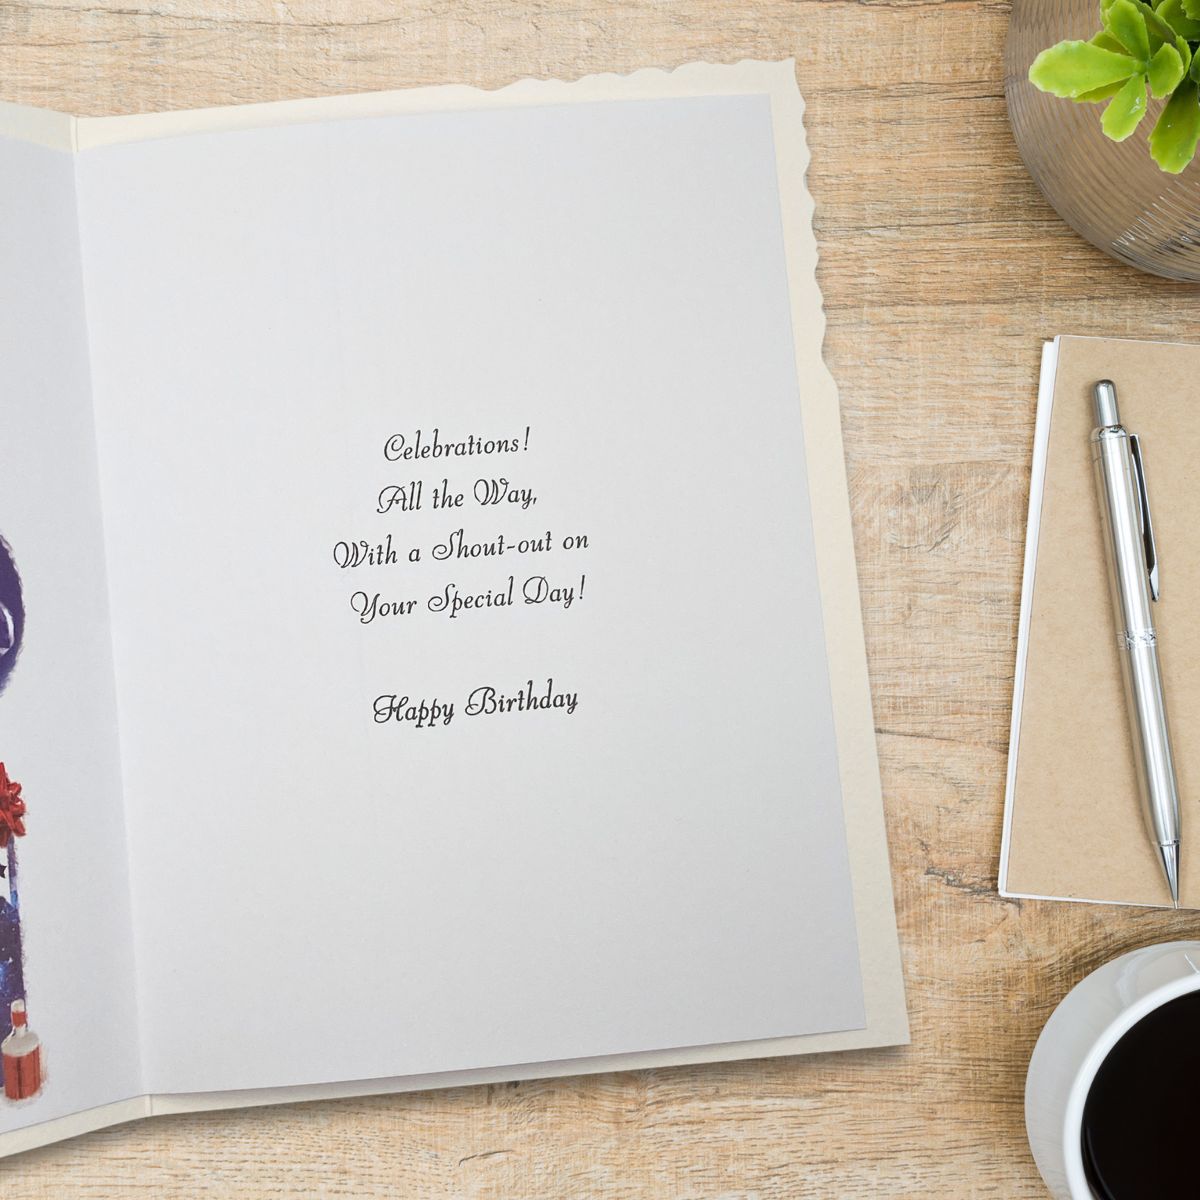 Celebrations!
All the Way,
With a Shout-out on
Your Special Day!
Happy Birthday